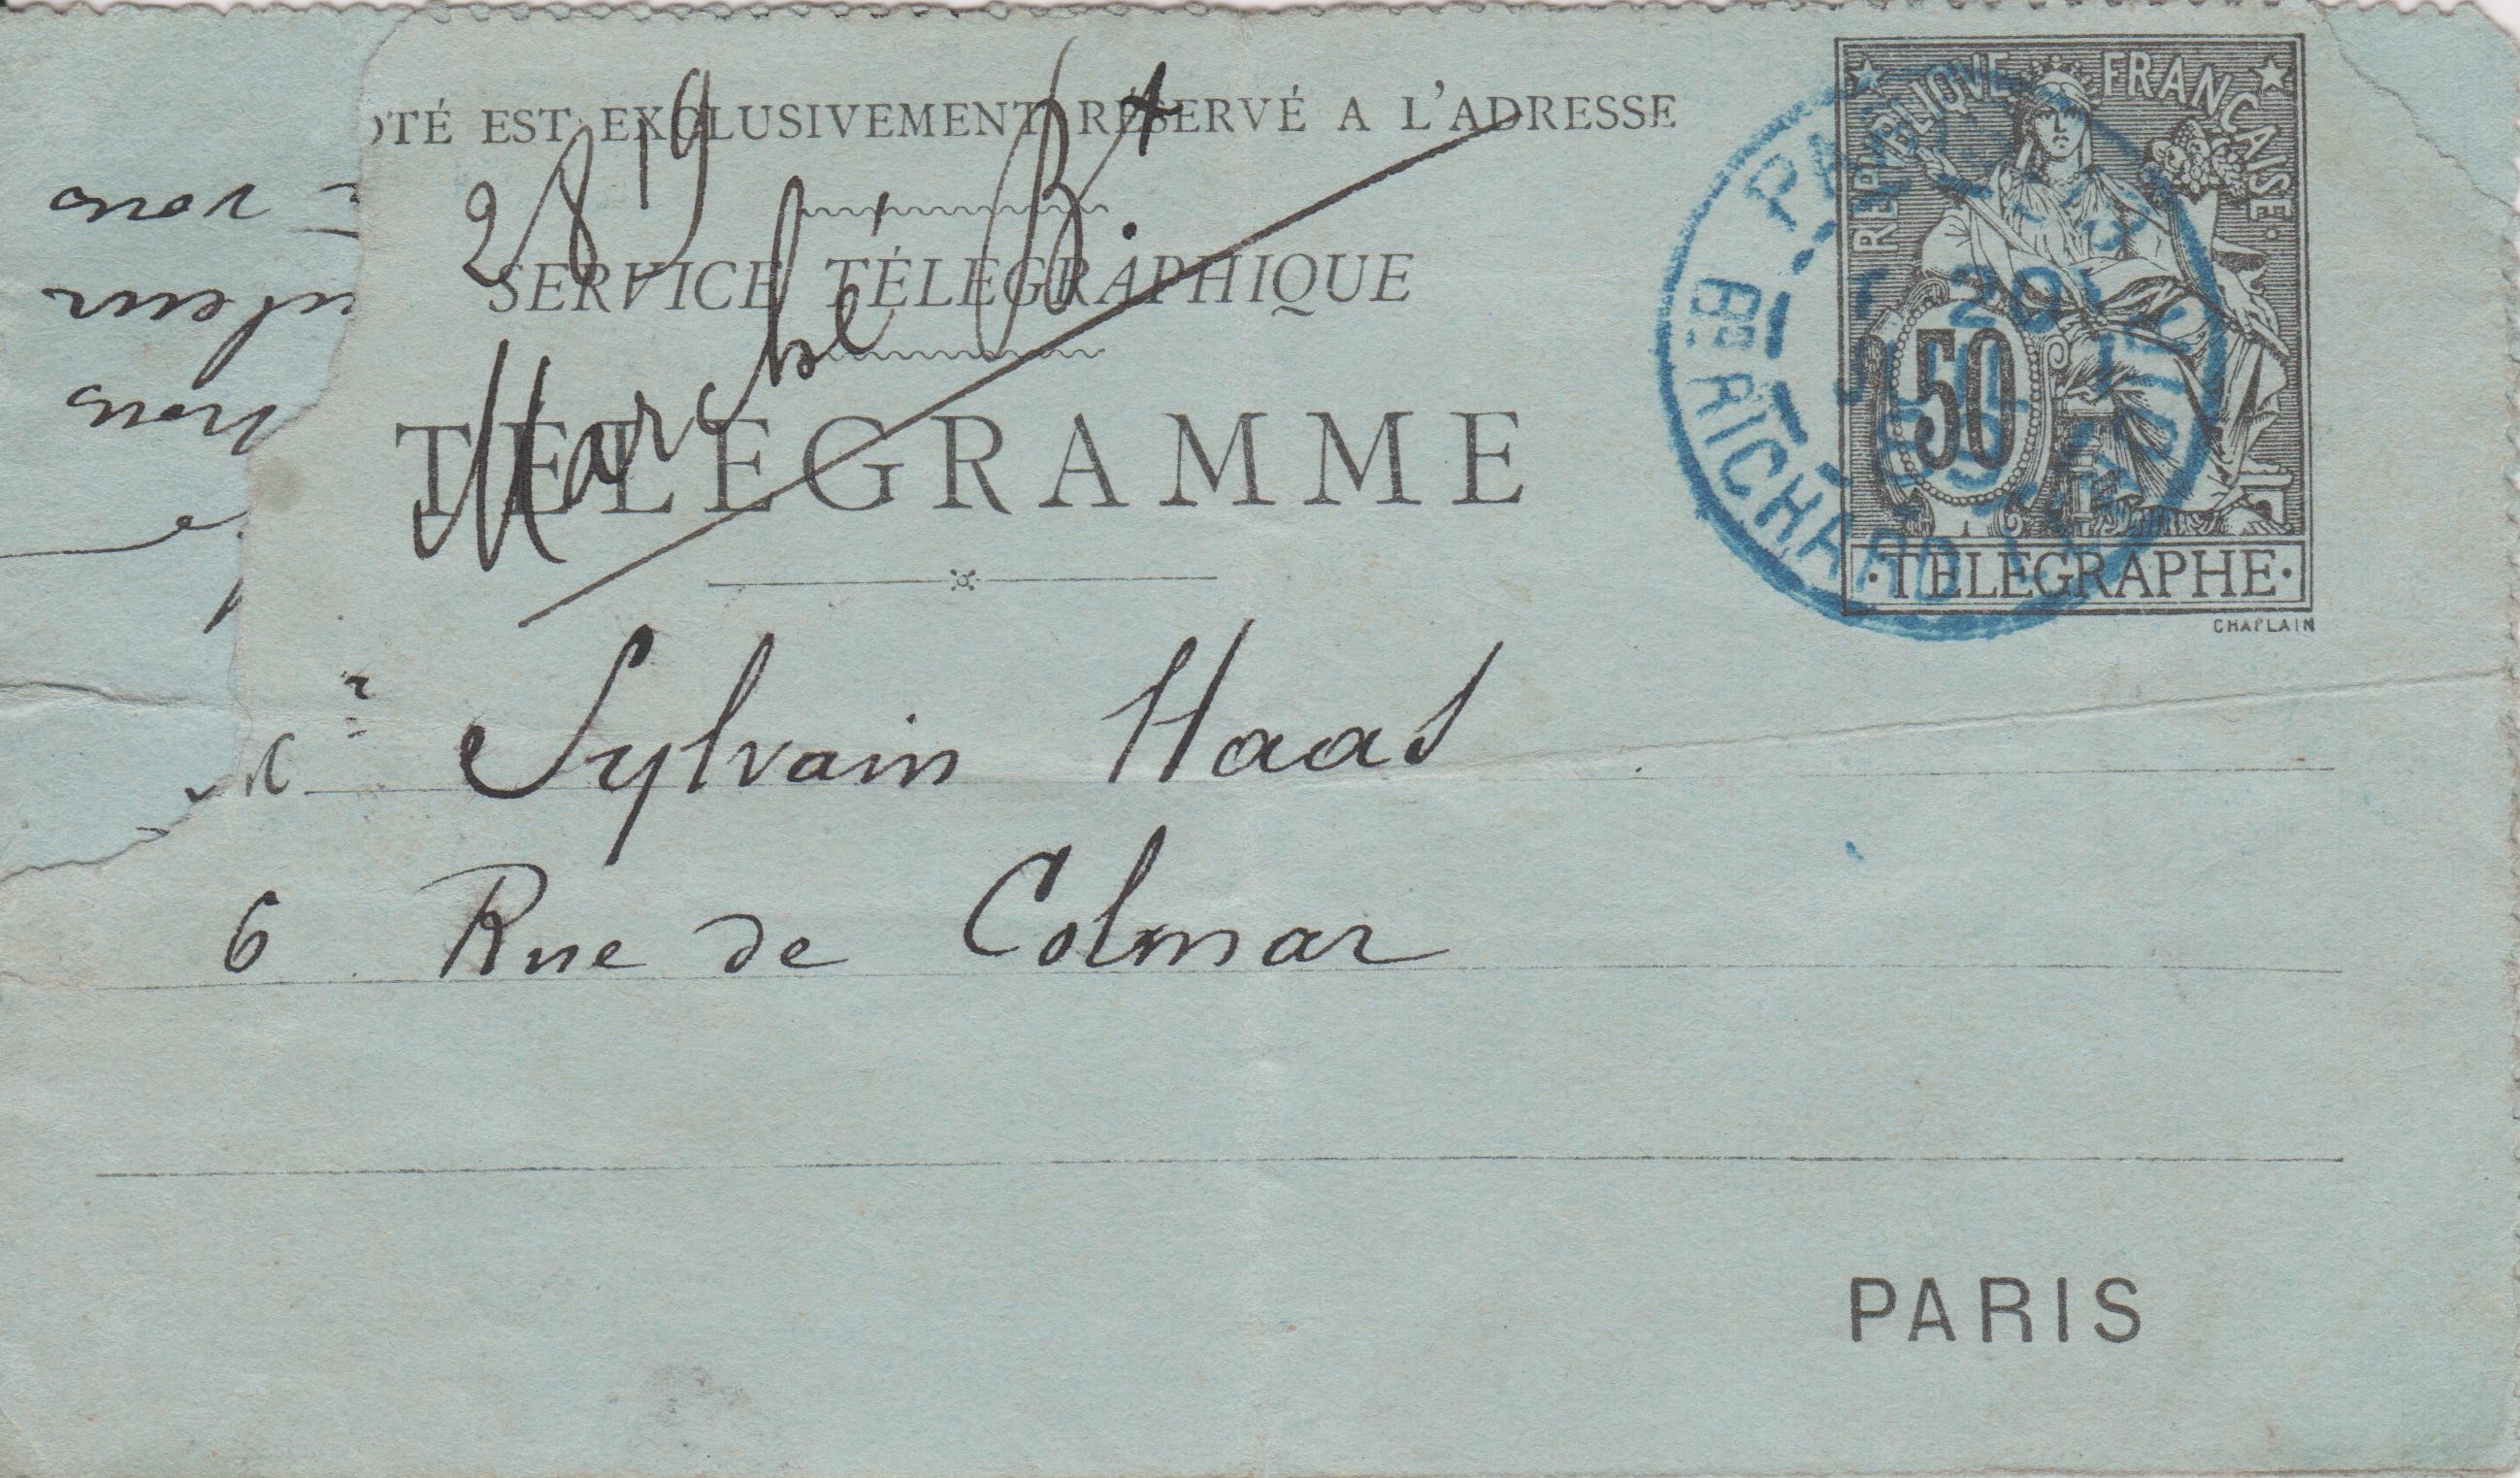 OTÉ EST EXCLUSIVEMENT RÉSERVÉ A L'ADRESSE
28 19
SERVICE TÉLÉGRAPHIQUE
Marché
TÉLÉGRAMME
Sylvain Haas
6 Rue de Colmar
PARIS
REPUBLIQUE FRANÇAISE
50
TELEGRAPHE
CHAPLAIN
20
Bd RICHARD
vous
vous